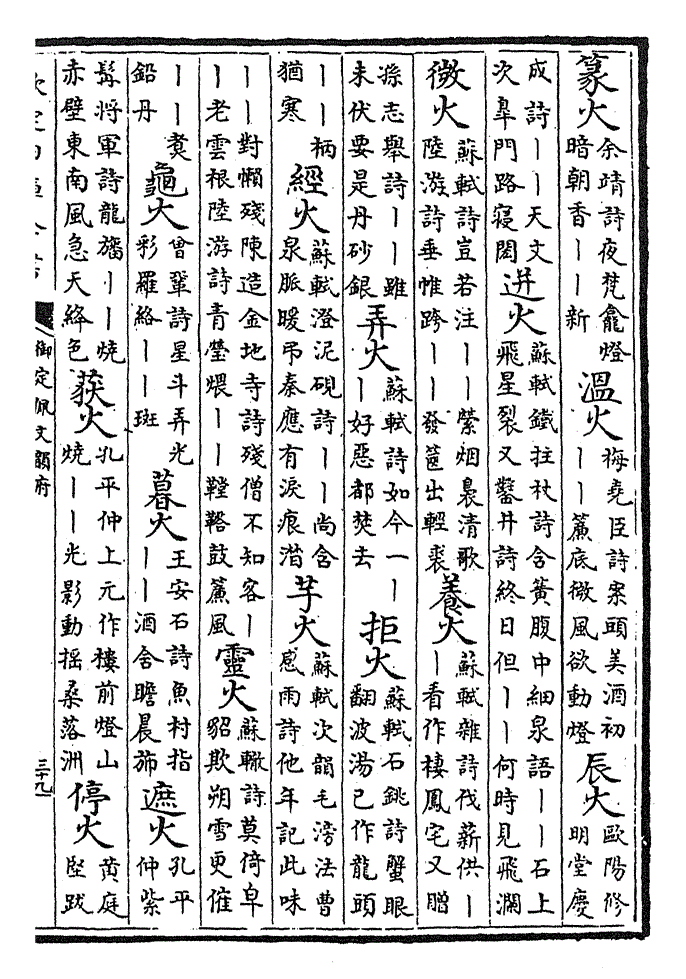 篆火余靖詩夜梵龕燈暗朝香丨丨新溫火梅堯臣詩案頭美酒初丨丨簾底微風欲動燈辰火歐陽修明堂慶
成詩丨丨天文次臯門路寢閎迸火蘇軾鐵拄杖詩含簧腹中細泉語丨丨石上飛星裂又鑿井詩終日但丨丨何時見飛瀾
微火蘇軾詩豈若注丨丨縈烟裊清歌陸游詩垂帷跨丨丨發篋出輕裘養火蘇軾雜詩伐薪供丨丨看作棲鳳宅又贈
孫志舉詩丨丨雖未伏要是丹砂銀弄火蘇軾詩如今一丨丨好惡都焚去拒火蘇軾石銚詩蟹眼翻波湯已作龍頭
丨丨柄猶寒經火蘇軾澄泥硯詩丨丨尚含泉脈暖弔秦應有淚痕潸芋火蘇軾次韻毛滂法曹感雨詩他年記此味
丨丨對懶殘陳造金地寺詩殘僧不知客丨丨老雲根陸游詩青熒煨丨丨鞺鞳鼓簾風靈火蘇轍詩莫倚皁貂欺朔雪更催
丨丨煑鉛丹龜火曾鞏詩星斗弄光彩羅絡丨丨斑暮火王安石詩魚村指丨丨酒舍瞻晨斾遮火孔平仲紫
髯將軍詩龍旛丨丨燒赤壁東南風急天絳色荻火孔平仲上元作樓前燈山燒丨丨光影動搖桑落洲停火黄庭堅跋
欽定四庫全書
御定佩文韻府
三十九